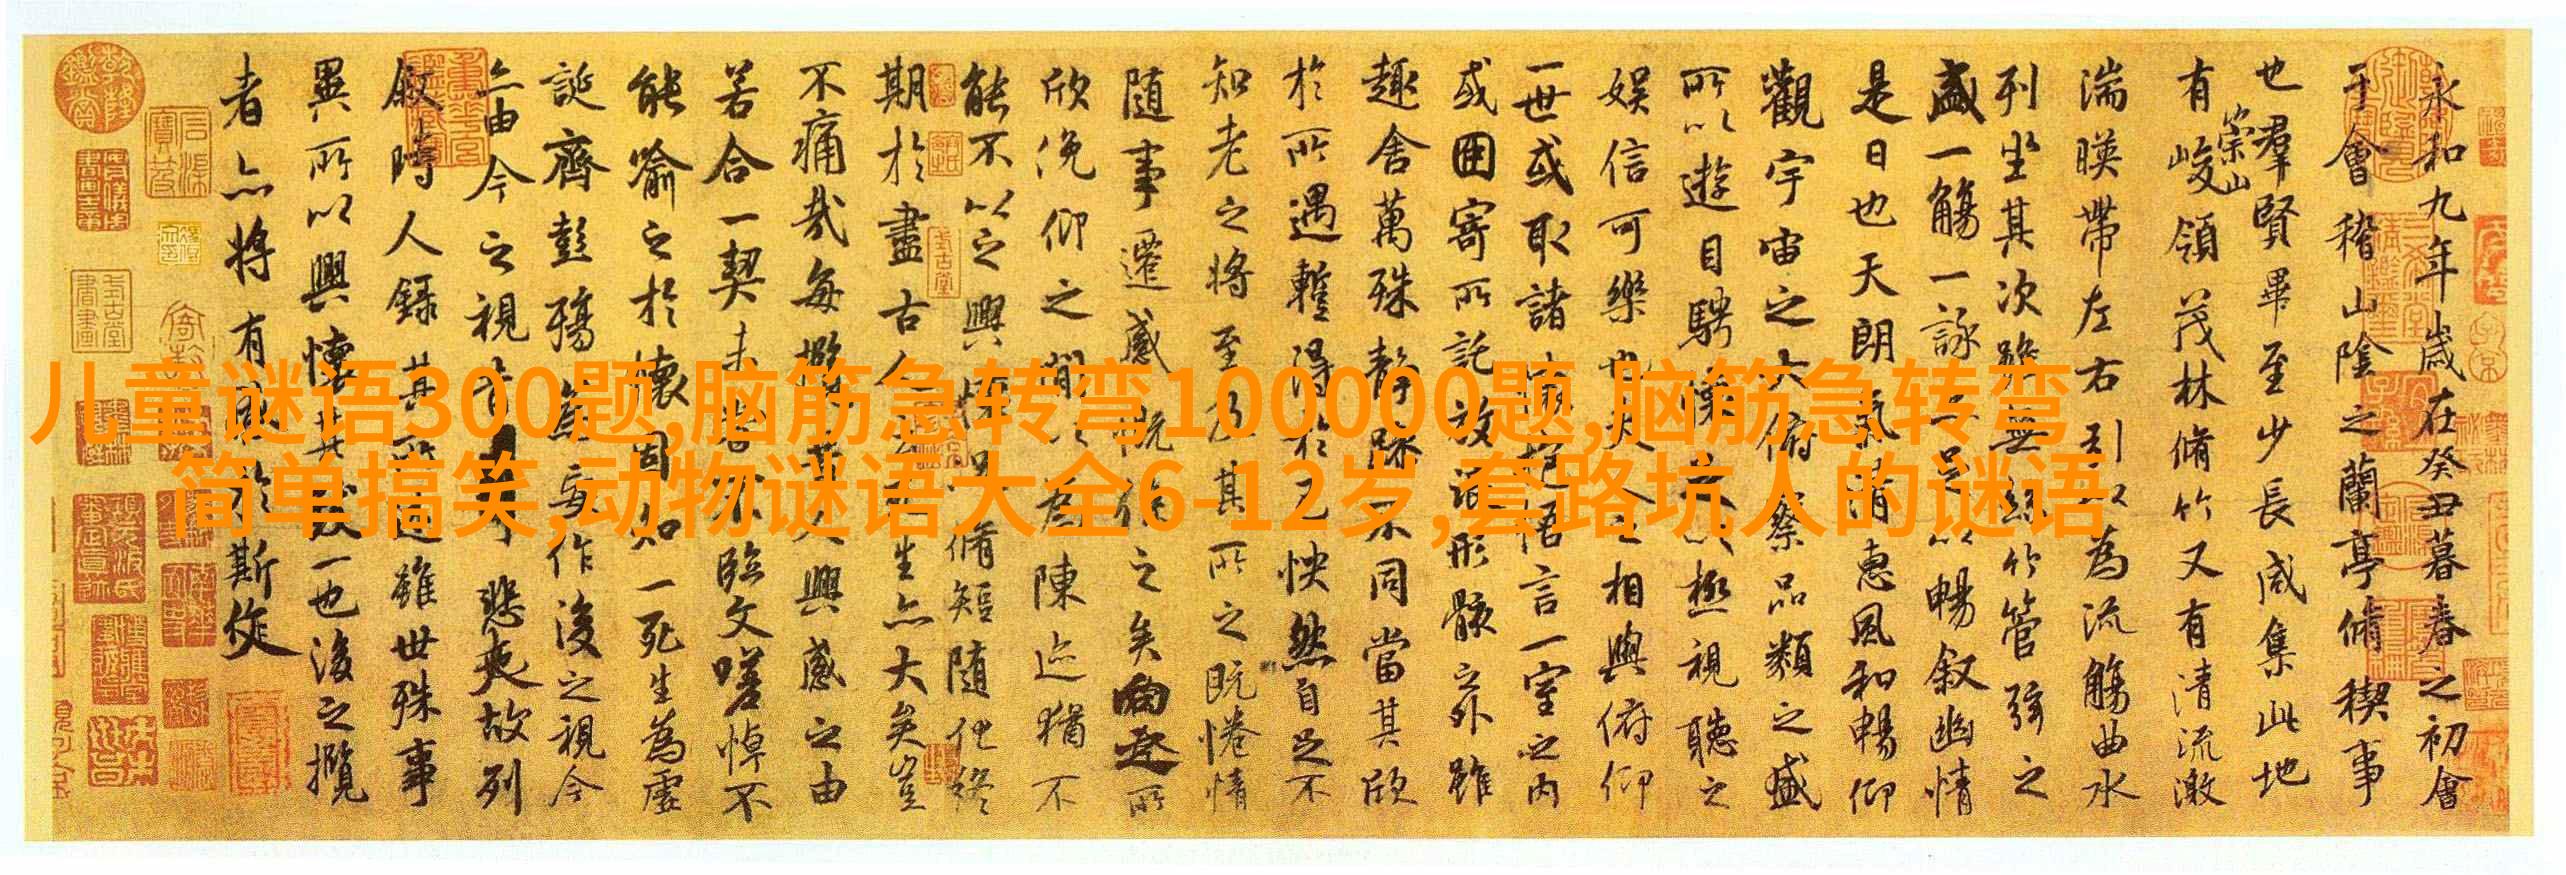 儿童谜语300题,脑筋急转弯100000题,脑筋急转弯
简单搞笑,动物谜语大全6-12岁,套路坑人的谜语
永和九年歲在癸丑暮春之初會
于會稽山陰之蘭亭脩稧事
也羣賢畢至少長咸集此地
有崇山峻領茂林脩竹又有清流激
湍暎帶左右引以為流觴曲水
列坐其次雖無絲竹管弦之
盛一觴一詠亦足以暢敘幽情
是日也天朗氣清惠風和暢仰
觀宇宙之大俯察品類之盛
所以遊目騁懷足以極視聽之
娛信可樂也夫人之相與俯仰
一世或取諸懷抱悟言一室之內
或因寄所託放浪形骸之外雖
趣舍萬殊靜躁不同當其欣
於所遇暫得於己怏然自足不
知老之將至及其所之既惓情
隨事遷感慨係之矣向之所
欣俛仰之閒以為陳迹猶不
能不以之興懷況脩短隨化終
期於盡古人云死生亦大矣豈
不痛哉每攬昔人興感之由
若合一契未嘗不臨文嗟悼不
能喻之於懷固知一死生為虛
誕齊彭殤為妄作後之視今
亦由今之視昔悲夫故列
敘時人錄其所述雖世殊事
異所以興懷其致一也後之攬
者亦將有感於斯文